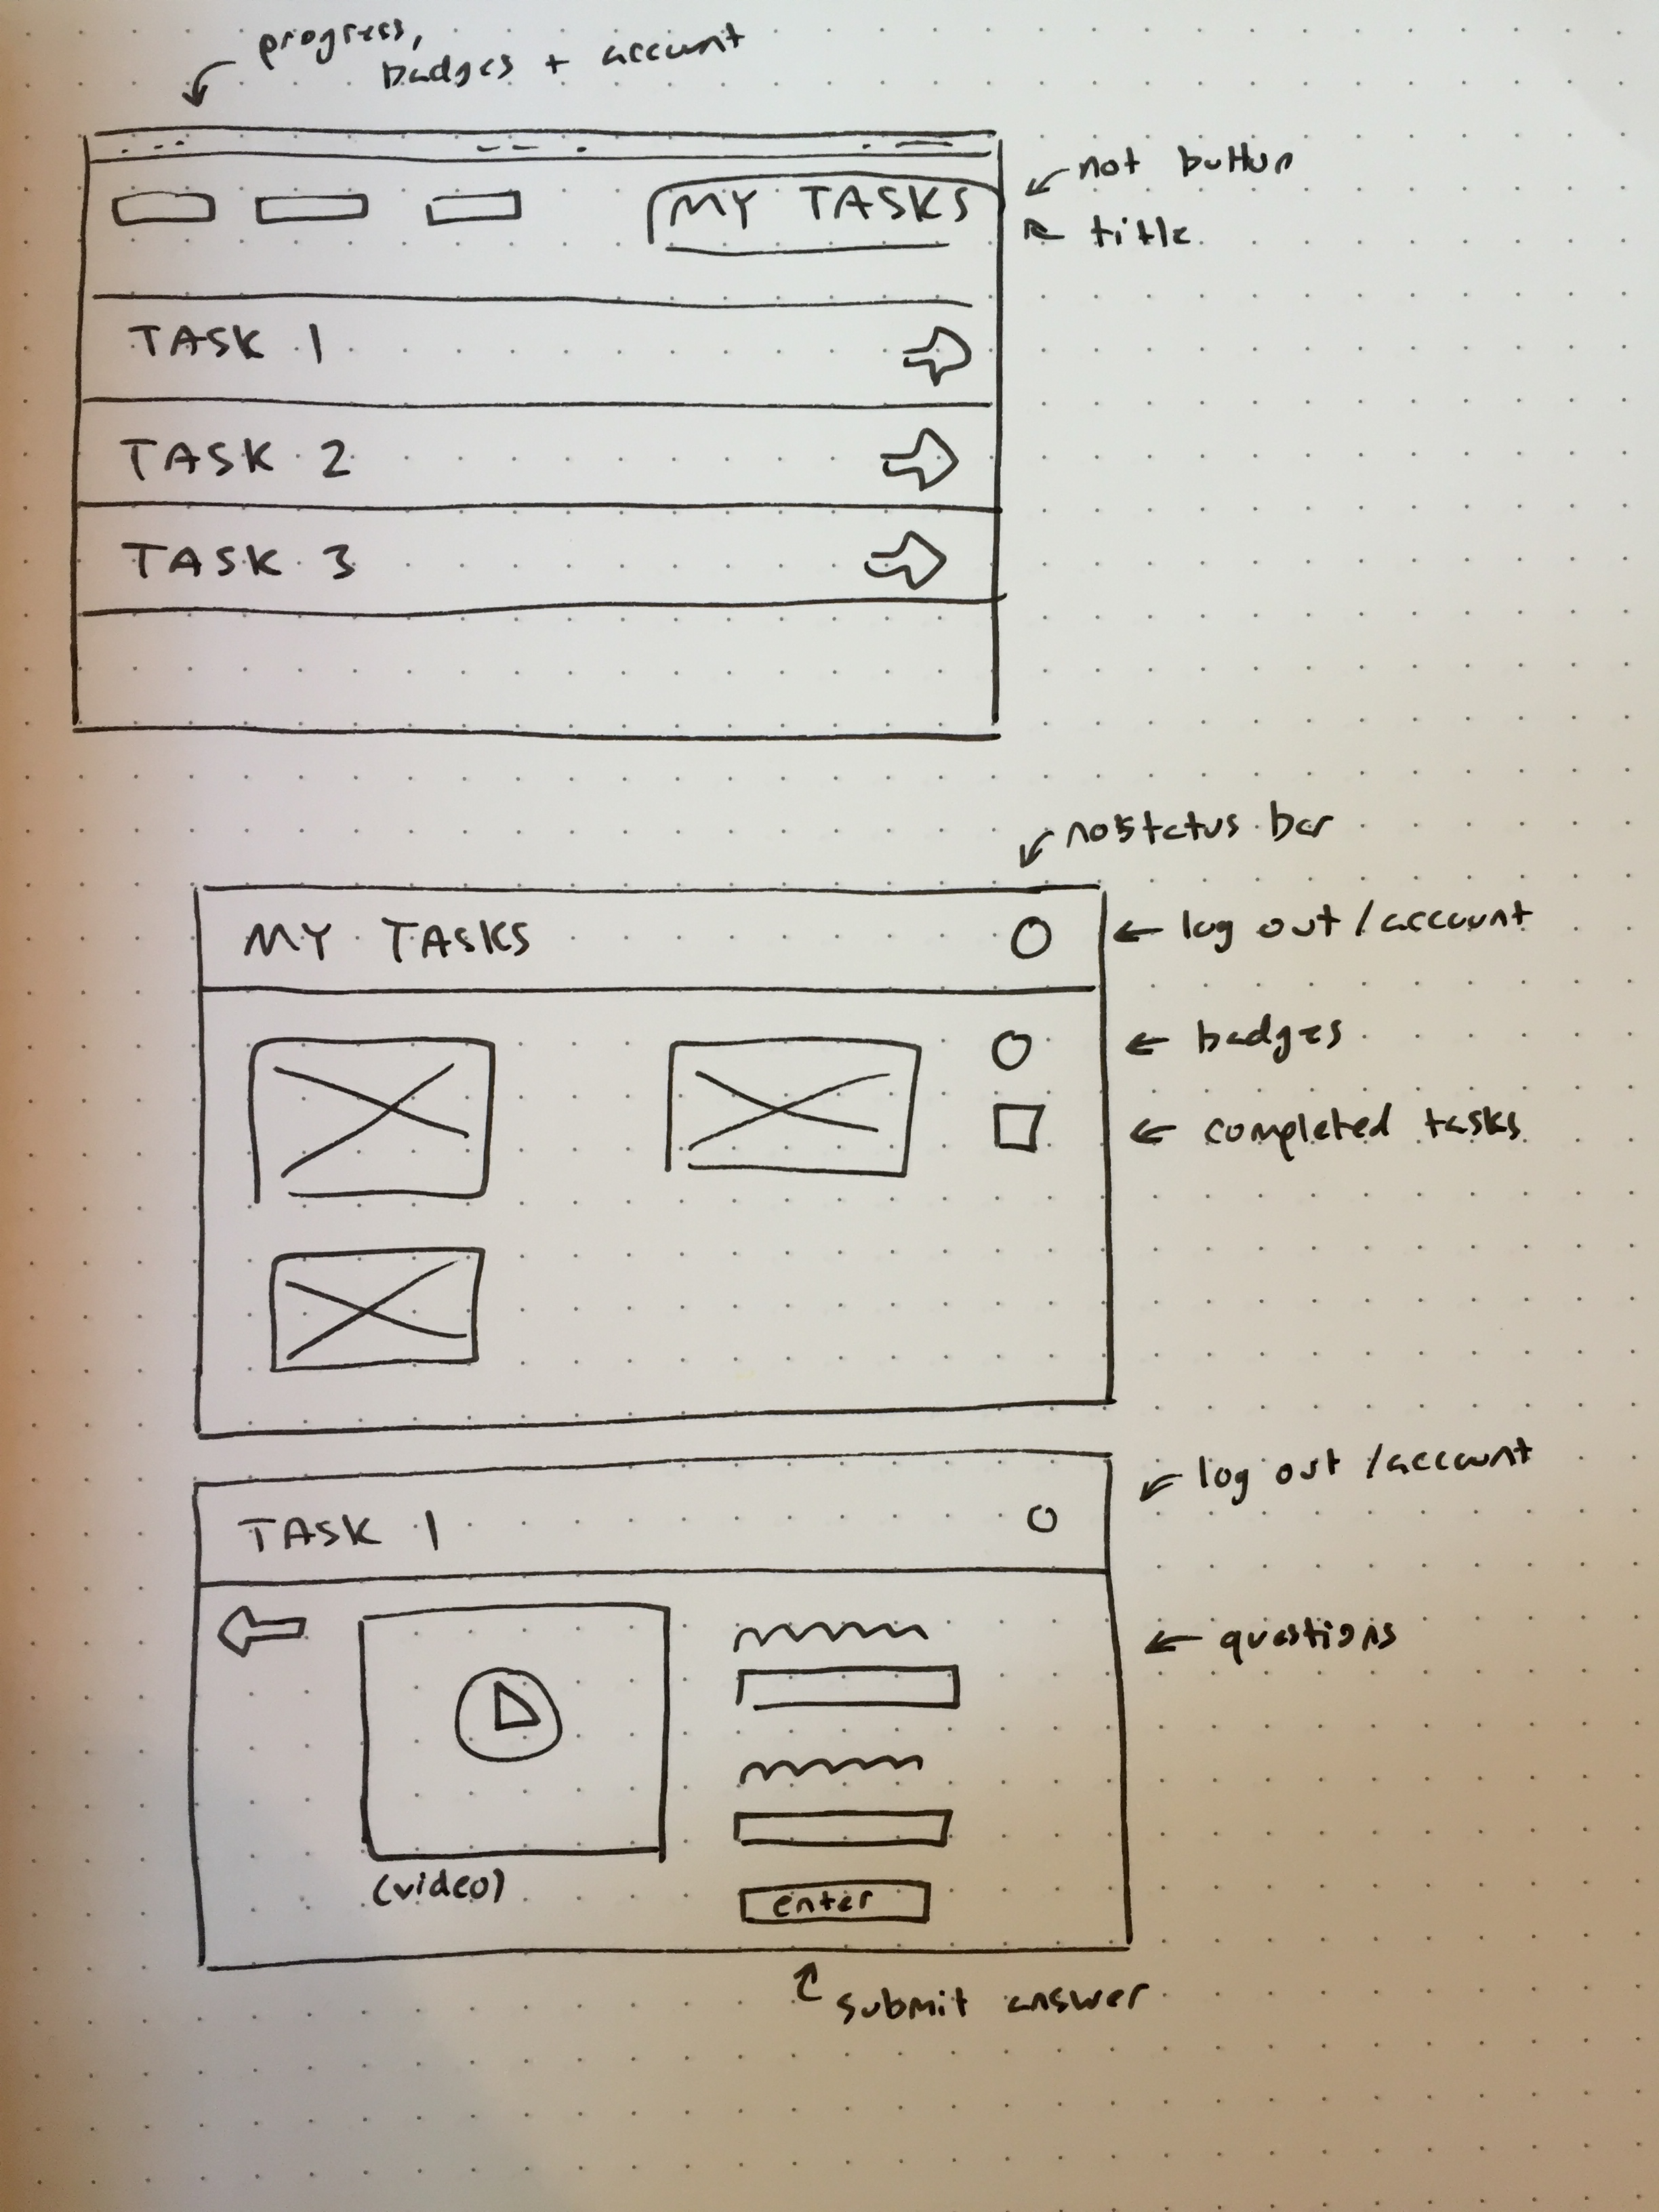 progress,
badges + account
MY TASKS
not button
title
TASK 1
TASK 2
TASK 3
no status bar
MY TASKS
log out / account
badges
completed tasks
log out / account
TASK 1
questions
(video)
enter
submit answer